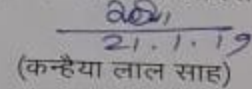 21.1.19
(कन्हैया लाल साह)